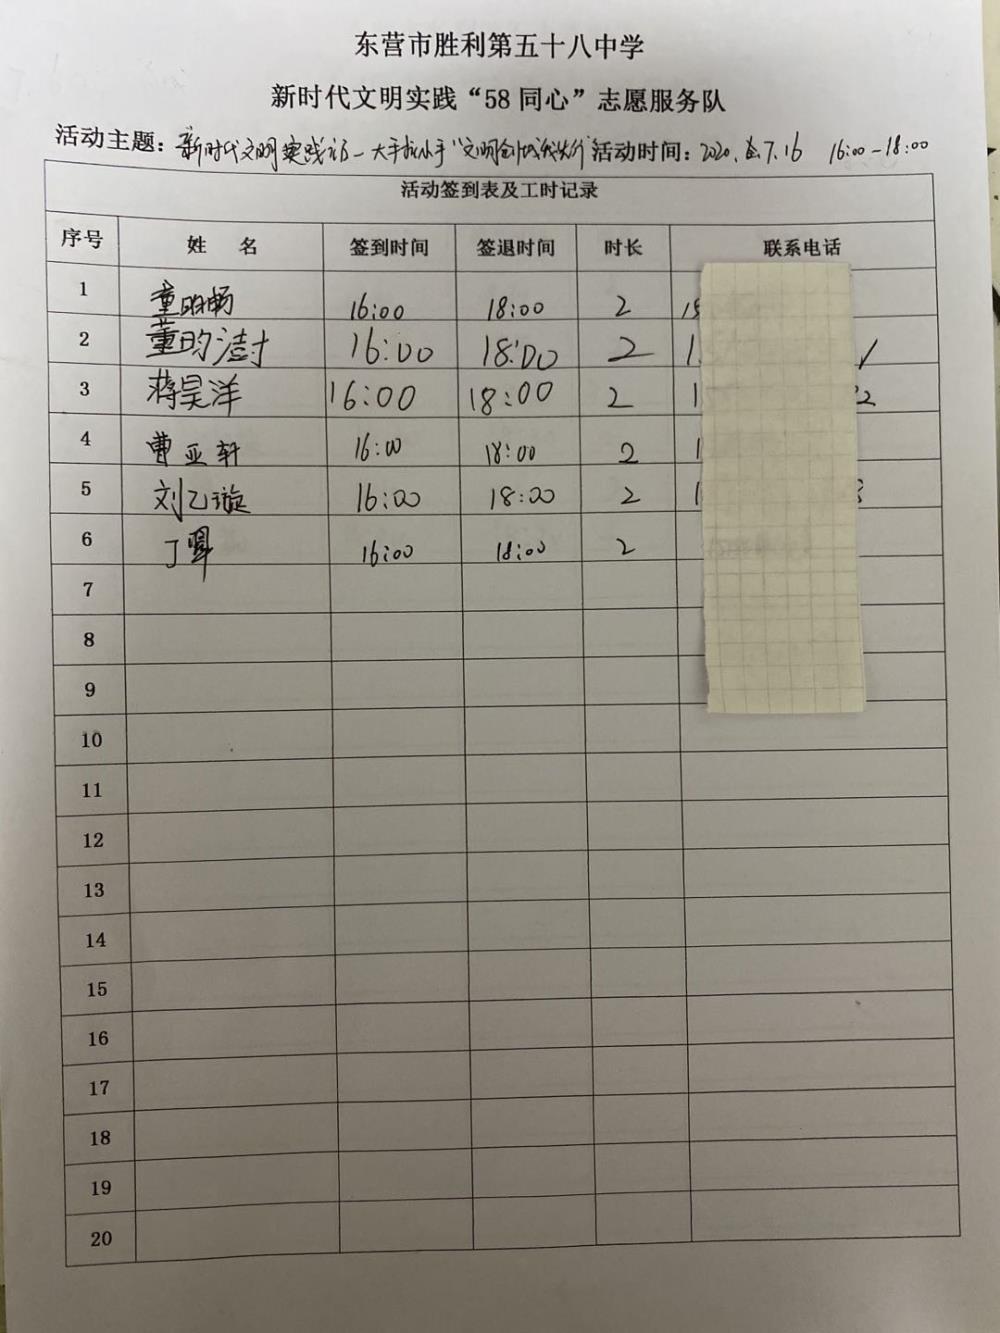 东营市胜利第五十八中学
新时代文明实践“58 同心”志愿服务队
活动主题：新时代文明实践 一大手拉小手“文明创城 活动时间：2020. 7.16 16:00-18:00
活动签到表及工时记录
序号 姓 名 签到时间 签退时间 时长 联系电话
1 董昀畅 16:00 18:00 2 15
2 董昀澍 16:00 18:00 2 1
3 蒋昊洋 16:00 18:00 2 1 2
4 曹亚轩 16:00 18:00 2 1
5 刘乙璇 16:00 18:00 2 1 3
6 丁 16:00 18:00 2
7
8
9
10
11
12
13
14
15
16
17
18
19
20